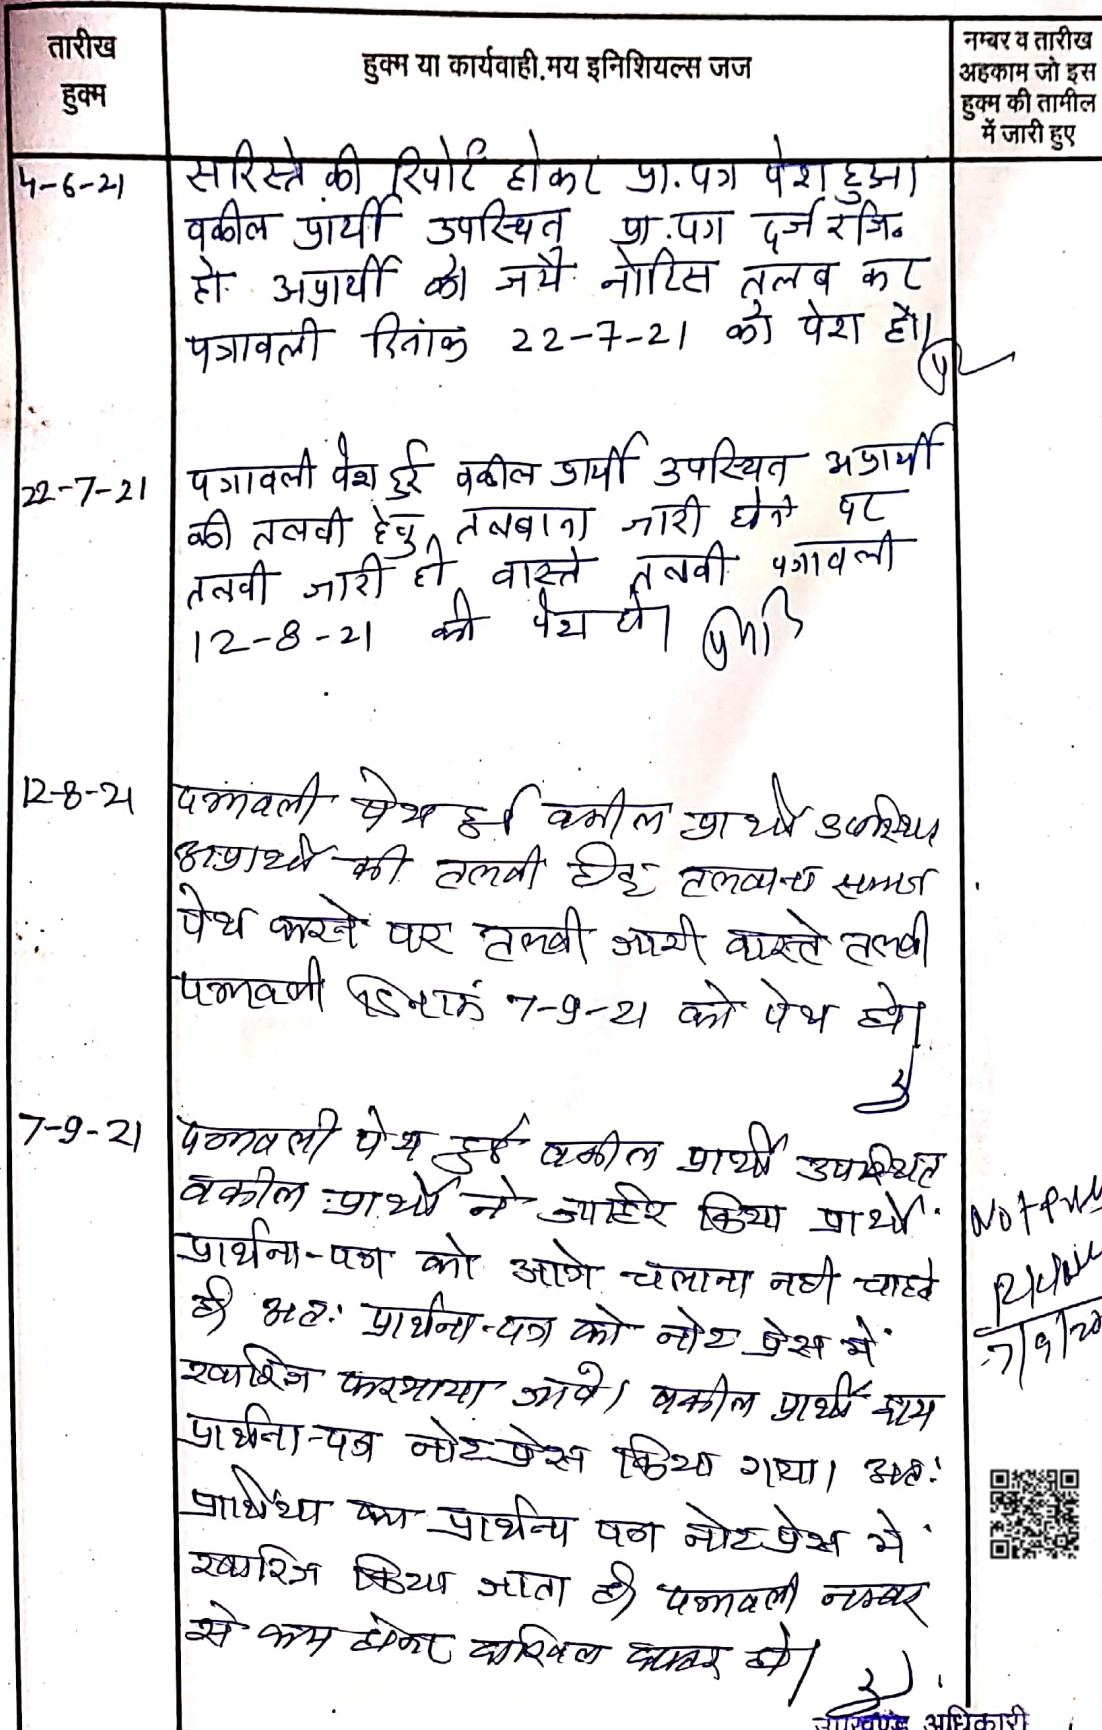 तारीख
हुक्म
हुक्म या कार्यवाही.मय इनिशियल्स जज
नम्बर व तारीख
अहकाम जो इस
हुक्म की तामील
में जारी हुए
4-6-21
सरिस्ते की रिपोर्ट होकर प्रा.पत्र पेश हुआ।
वकील प्रार्थी उपस्थित प्रा.पत्र दर्ज रजि०
हो. अप्रार्थी को जर्ये नोटिस तलब कर
पत्रावली दिनांक 22-7-21 को पेश हो।
22-7-21
पत्रावली पेश हुई वकील प्रार्थी उपस्थित अप्रार्थी
की तलवी हेतु तलबाना जारी होने पर
तलवी जारी हो वास्ते तलवी पत्रावली
12-8-21 को पेश हो।
12-8-21
पत्रावली पेश हुई वकील प्रार्थी उपस्थित
अप्रार्थी की तलवी हेतु तलवाना
पेश करने पर तलबी जारी वास्ते तलबी
पत्रावली दिनांक 7-9-21 को पेश हो।
7-9-21
पत्रावली पेश हुई वकील प्रार्थी उपस्थित
वकील प्रार्थी ने जाहिर किया प्रार्थी
प्रार्थना-पत्र को आगे चलाना नही चाहते
है। अतः प्रार्थना-पत्र को नोट प्रेस में
खारिज फरमाया जावे। वकील प्रार्थी द्वारा
प्रार्थना-पत्र नोट प्रेस किया गया। अतः
प्रार्थीया का प्रार्थना पत्र नोट प्रेस में
खारिज किया जाता है। पत्रावली नम्बर
से कम होकर दाखिल दफ्तर हो।
Not
7/9/20
उपखण्ड अधिकारी